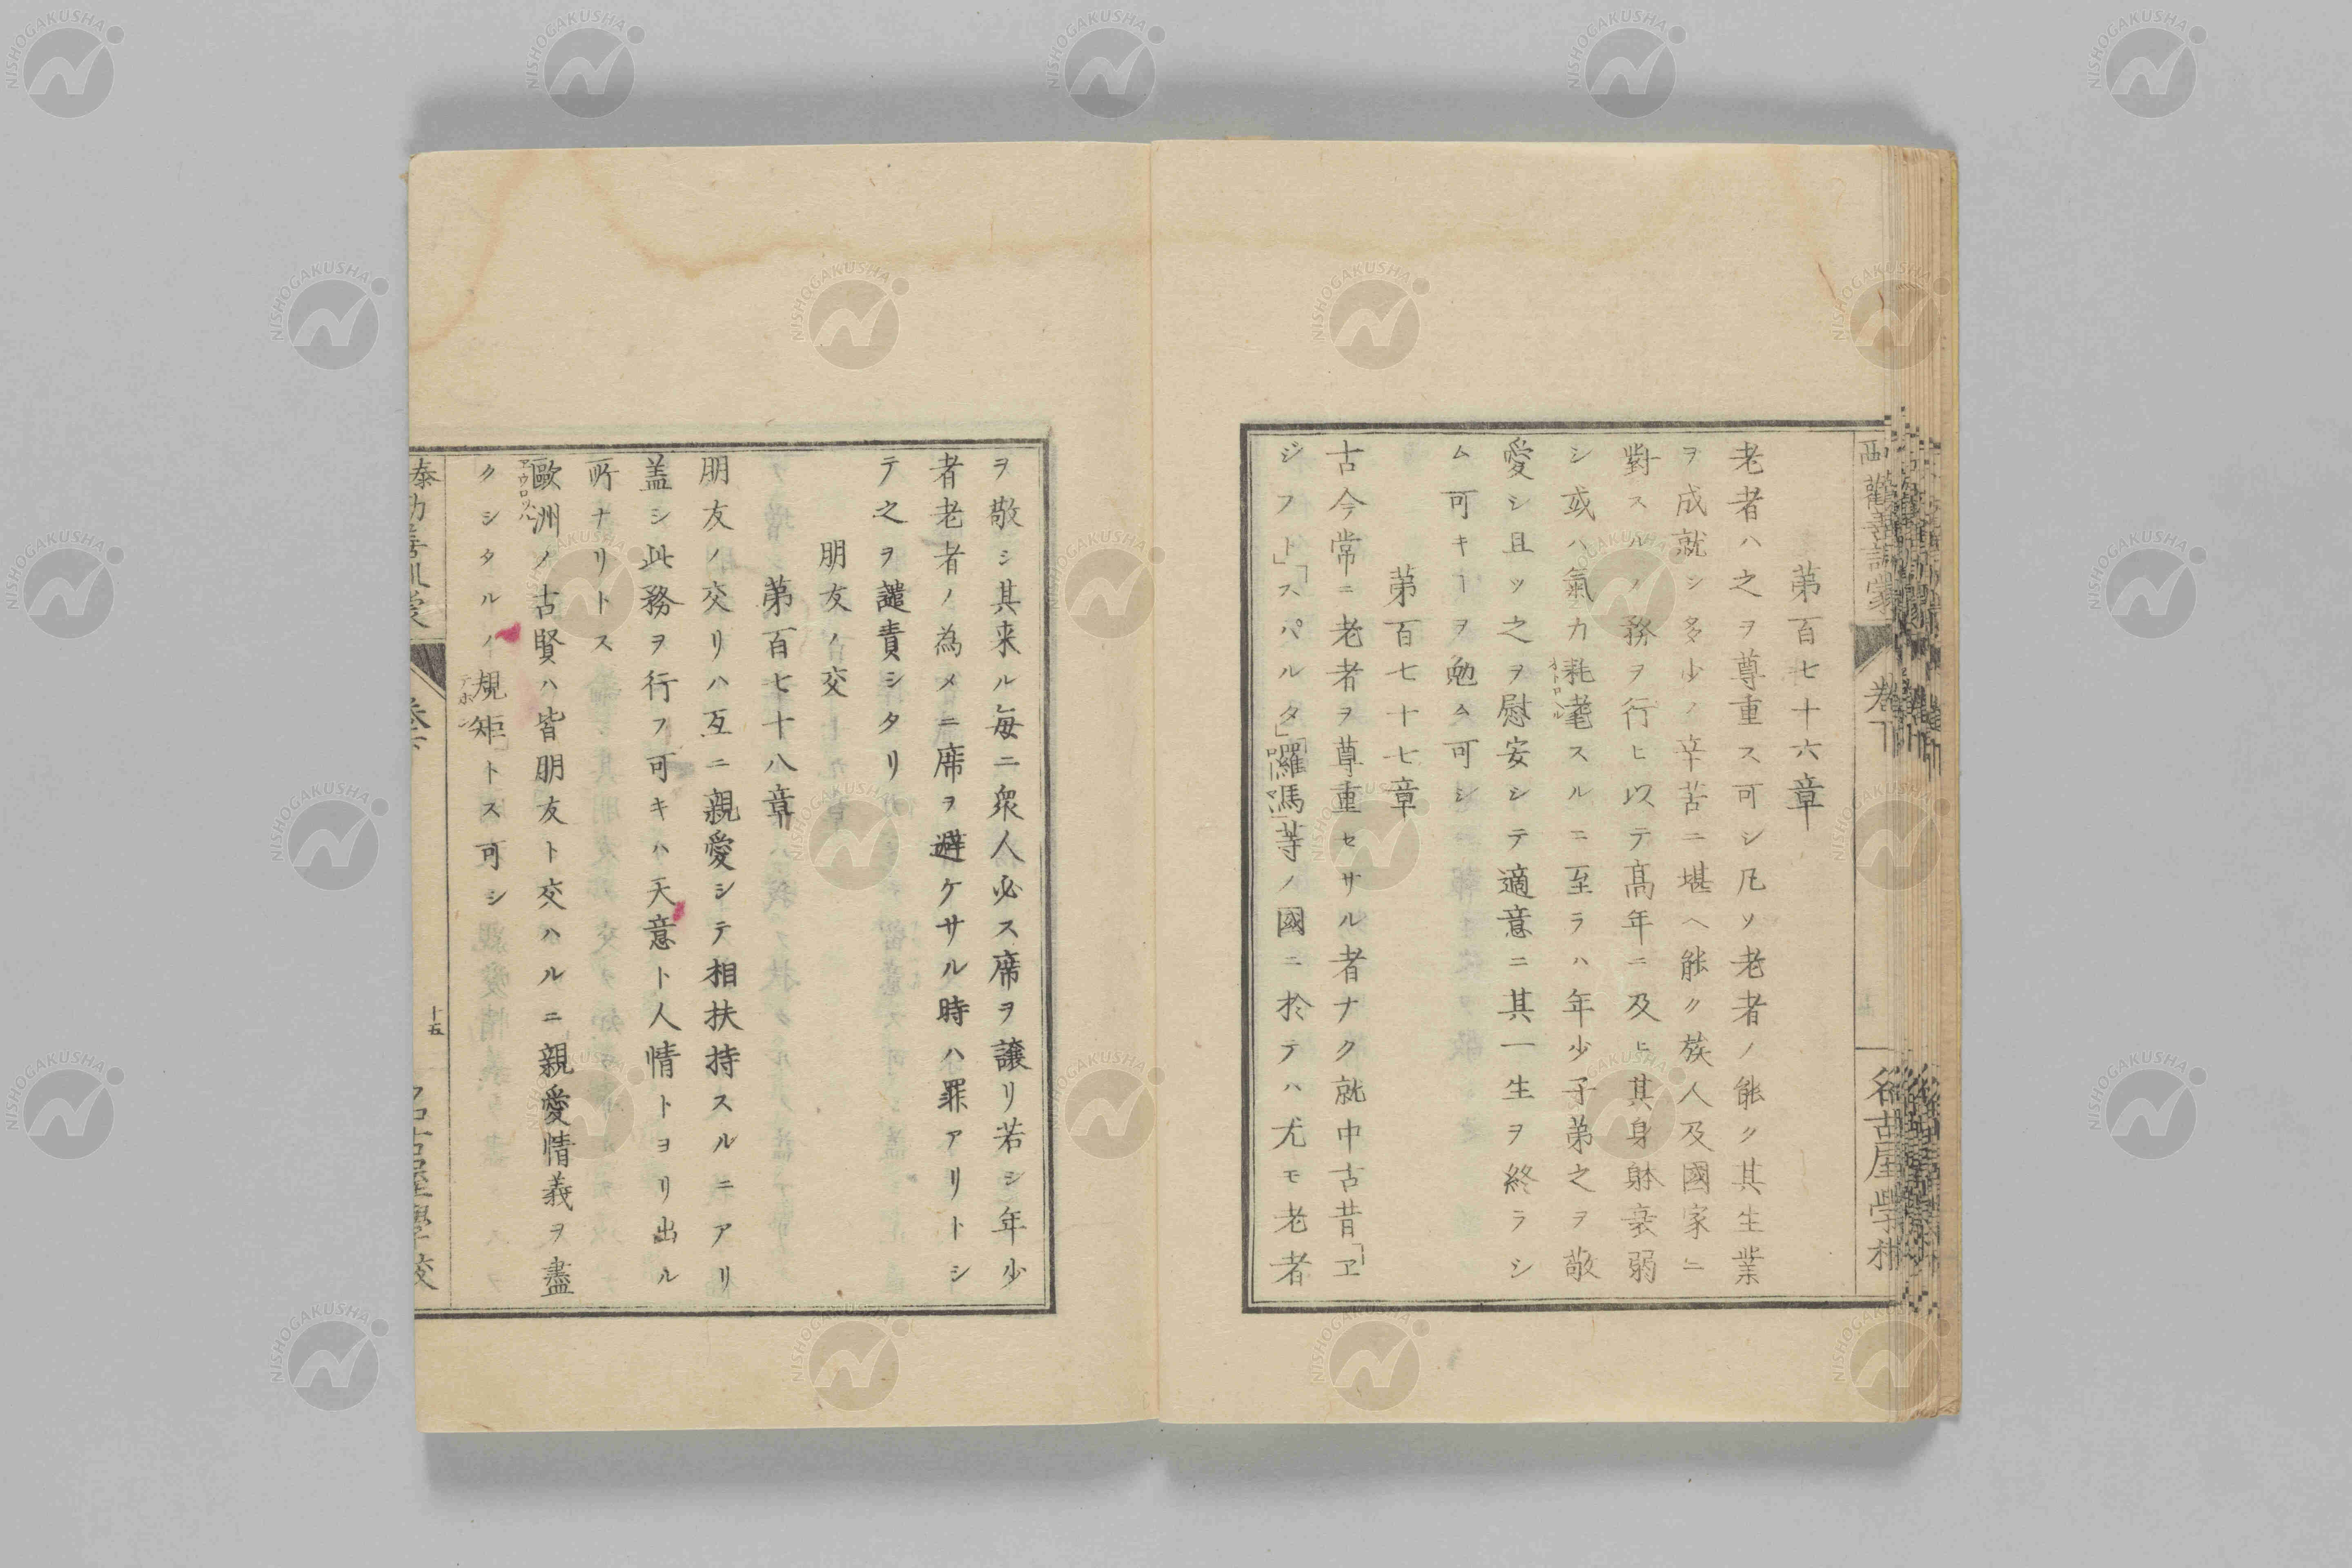 第百七十六章
老者ハ之ヲ尊重ス可シ凡ソ老者ノ能ク其生業
ヲ成就シ多少ノ辛苦ニ堪ヘ能ク族人及國家ニ
對スルノ務ヲ行ヒ以テ高年ニ及ヒ其身躰衰弱
シ或ハ氣力耗耄スルニ至ラハ年少子弟之ヲ敬
愛シ且ツ之ヲ慰安シテ適意ニ其一生ヲ終ラシ
ム可キヿヲ勉ム可シ
第百七十七章
古今常ニ老者ヲ尊重セサル者ナク就中古昔「ヱ
ジフト」「スパルタ」「羅馬」等ノ國ニ於テハ尤モ老者
ヲ敬シ其来ル毎ニ衆人必ス席ヲ譲リ若シ年少
者老者ノ為メニ席ヲ避ケサル時ハ罪アリトシ
テ之ヲ譴責シタリ
朋友ノ交
第百七十八章
朋友ノ交リハ互ニ親愛シテ相扶持スルニアリ
盖シ此務ヲ行フ可キハ天意ト人情トヨリ出ル
所ナリトス
歐洲ノ古賢ハ皆朋友ト交ハルニ親愛情義ヲ盡
クシタル
規矩トス可シ
十五
名古屋學校
NISHOGAKUSHA